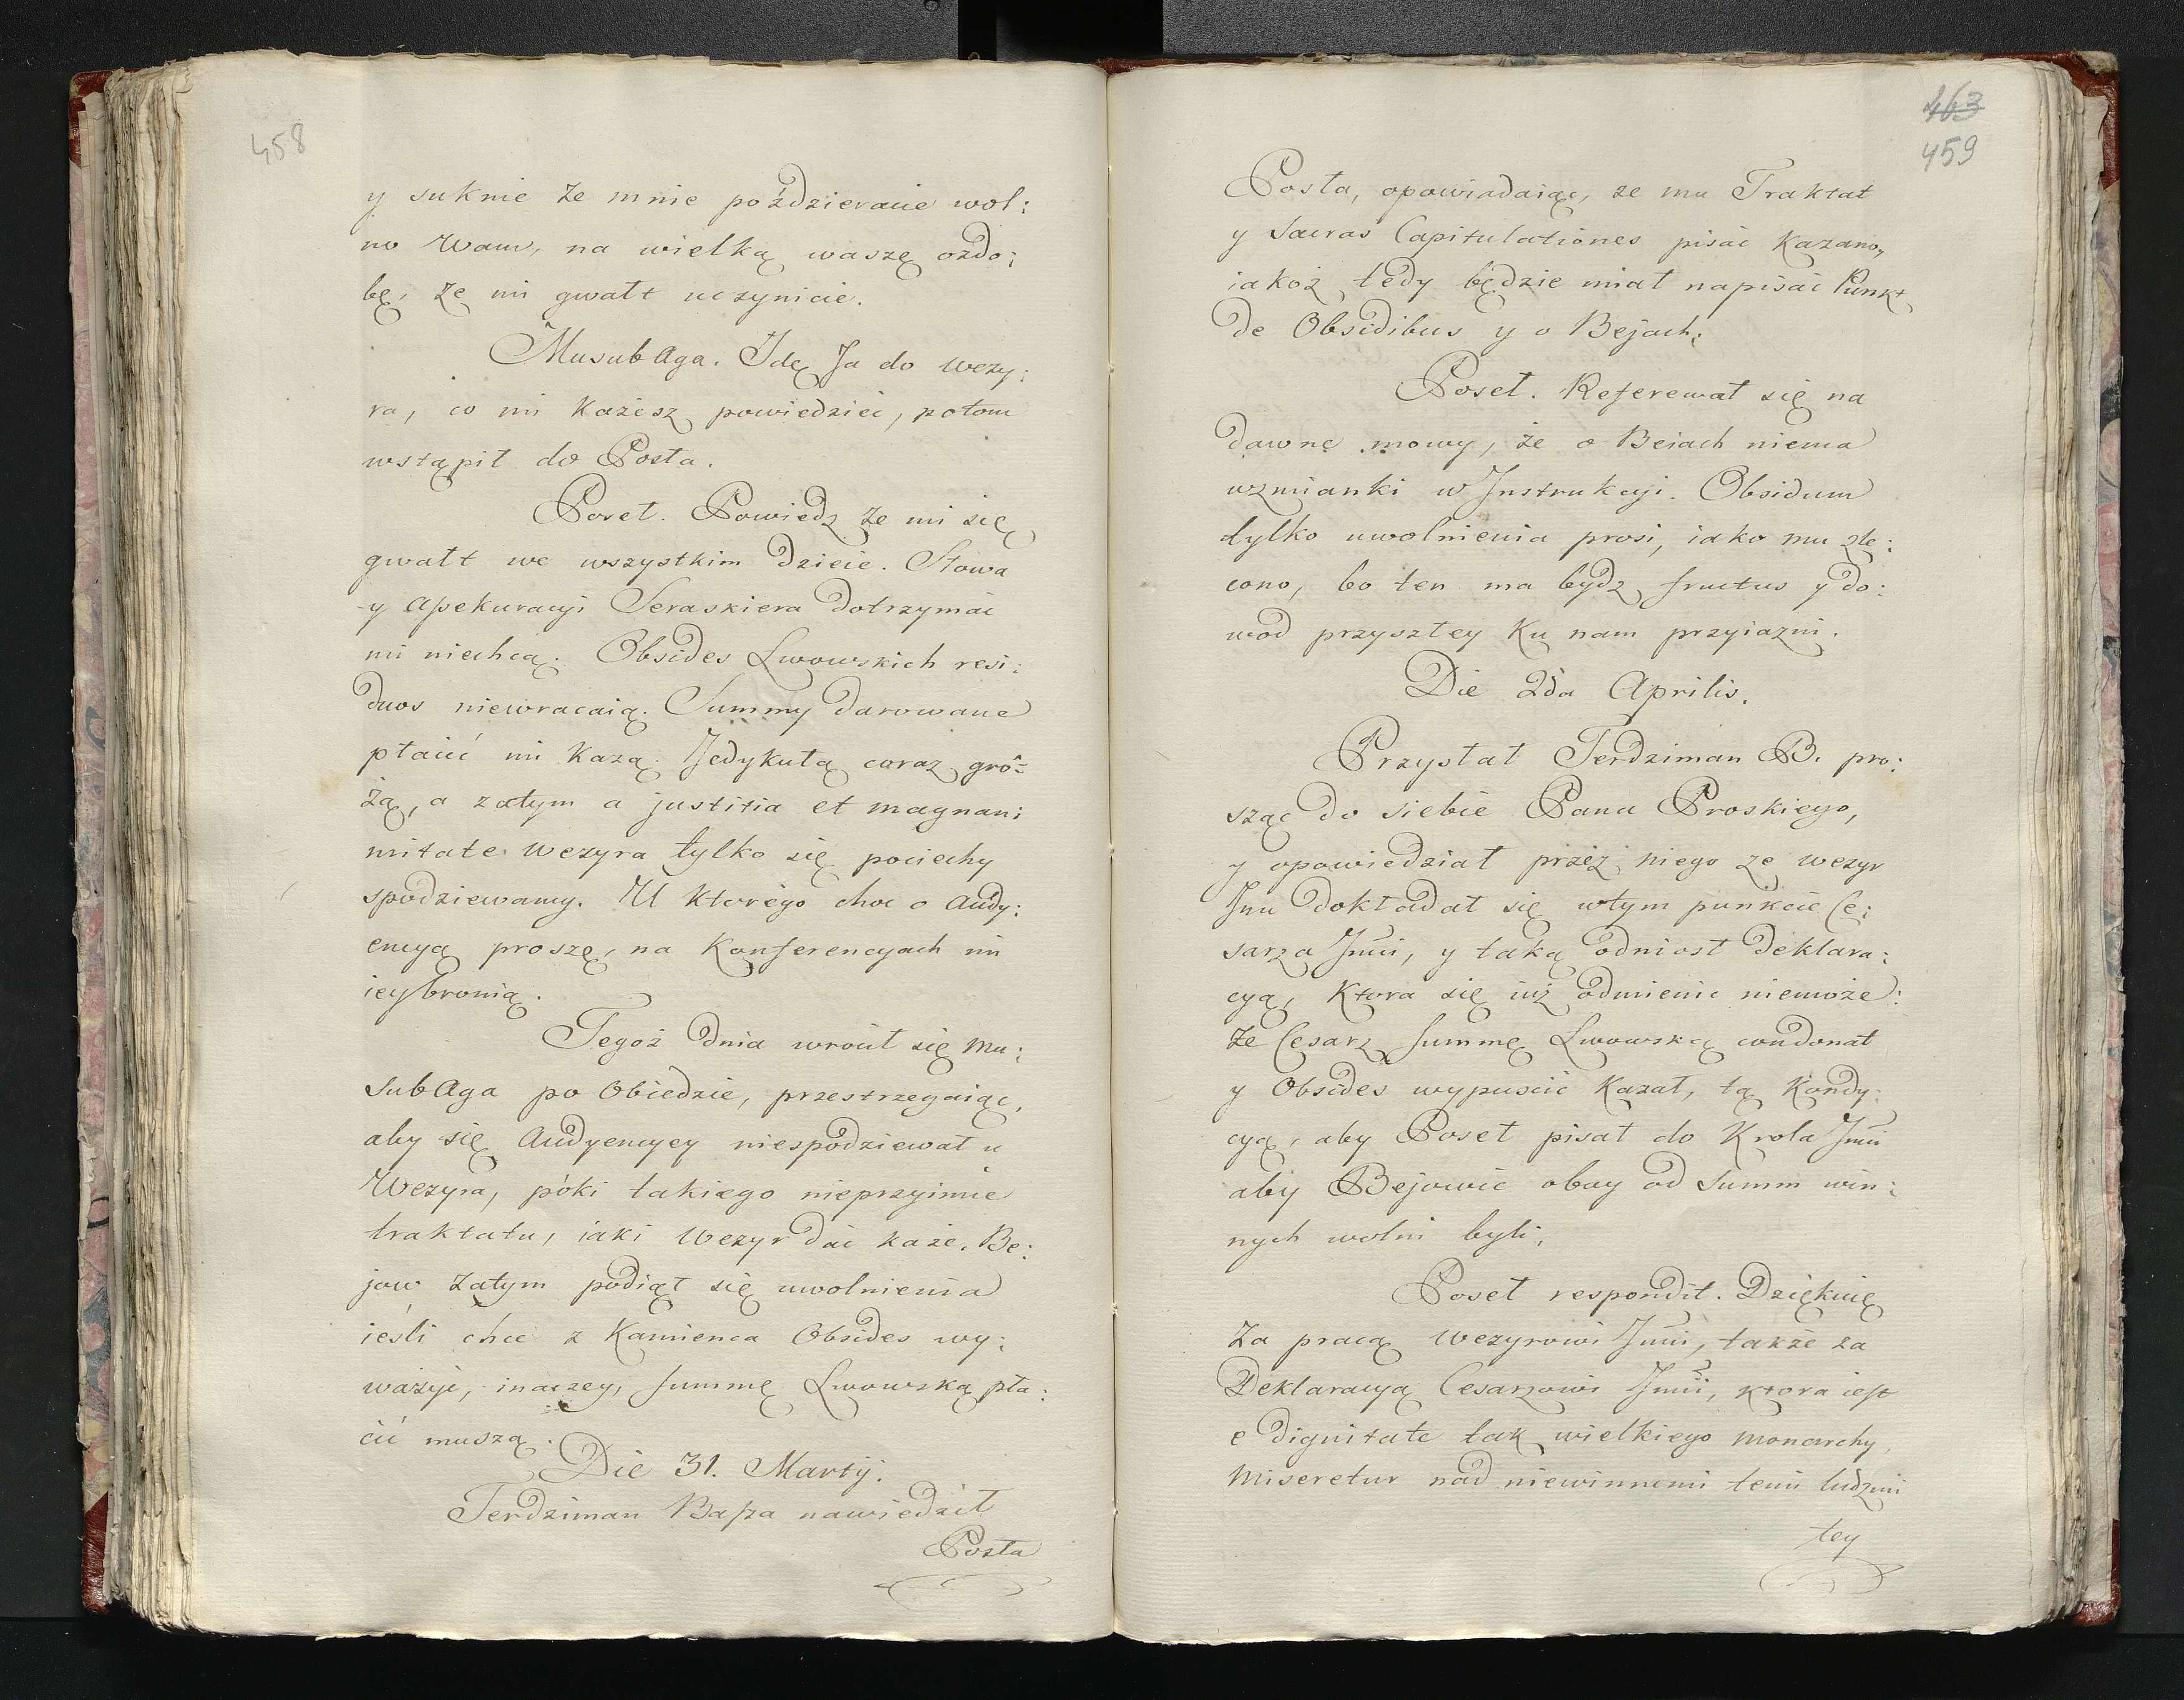 458
y suknie ze mnie poździeraic wol:
no Wam, na wielką waszę ozdo:
bę, że mi gwałt uczynicie.
Musub Aga. Idę Ja do Wezy:
ra, co mi każesz powiedzieć, potom
wstąpił do Posła.
Poseł. Powiedz że mi się
gwałt we wszystkim dzieie. Słowa
y assekuracyi Seraskiera dotrzymać
mi niechcą. Obsides Lwowskich resi:
duos niewracaią. Summy darowane
płacić mi każą. Jedykułą coraz gro:
żą, a zatym a justitia et magnani
mitate Wezyra tylko się pociechy
spodziewamy. U ktorego choc o Audy:
encyą proszę, na Konferencyach mi
iey bronią.
Tegoż dnia wrócił się Mu:
sub Aga po Obiedzie, przestrzegaiąc,
aby się Audyencyey niespodziewał u
Wezyra, póki takiego nieprzyimie
traktatu, iaki Wezyr dać każe. Be:
jow zatym podiął się uwolnienia
ieśli chce z Kamienca Obsides wy:
ważyć, inaczey, summę Lwowską pła:
cić muszą.
Die 31. Martij.
Terdziman Bassa nawiedził
Posła
463
459
Posła, opowiadaiąc, ze mu Traktat
y Sacras Capitulationes pisać kazano,
iakoż tedy będzie miał napisać Punkt
de Obsidibus y o Bejach.
Poseł. Referewał się na
dawne mowy, że o Beiach niema
wzmianki w Instrukcyi. Obsidum
tylko uwolnienia prosi, iako mu zle:
cono, bo ten ma bydz fructus y do:
wod przyszłey ku nam przyiazni.
Die 2da Aprilis.
Przysłał Terdziman B. pro:
sząc do siebie Pana Proskiego,
y opowiedział przez niego ze Wezyr
Jmu dokładał się w tym punkcie Ce:
sarza Jmci, y taką odniosł deklara:
cyą, Ktora się iuż odmienic niemoże:
Ze Cesarz summę Lwowską condonał
y Obsides wypuscić Kazał, tą Kondy:
cyą, aby Poseł pisał do Krola Jmci
aby Bejowie obay od Summ win:
nych wolni byli.
Poseł respondit. Dziękuię
Za pracą Wezyrowi Jmci, także za
Deklaracyą Cesarzowi Jmci, ktora iest
e dignitate tak wielkiego Monarchy,
Miseretur nad niewinnemi temi ludzmi
tey